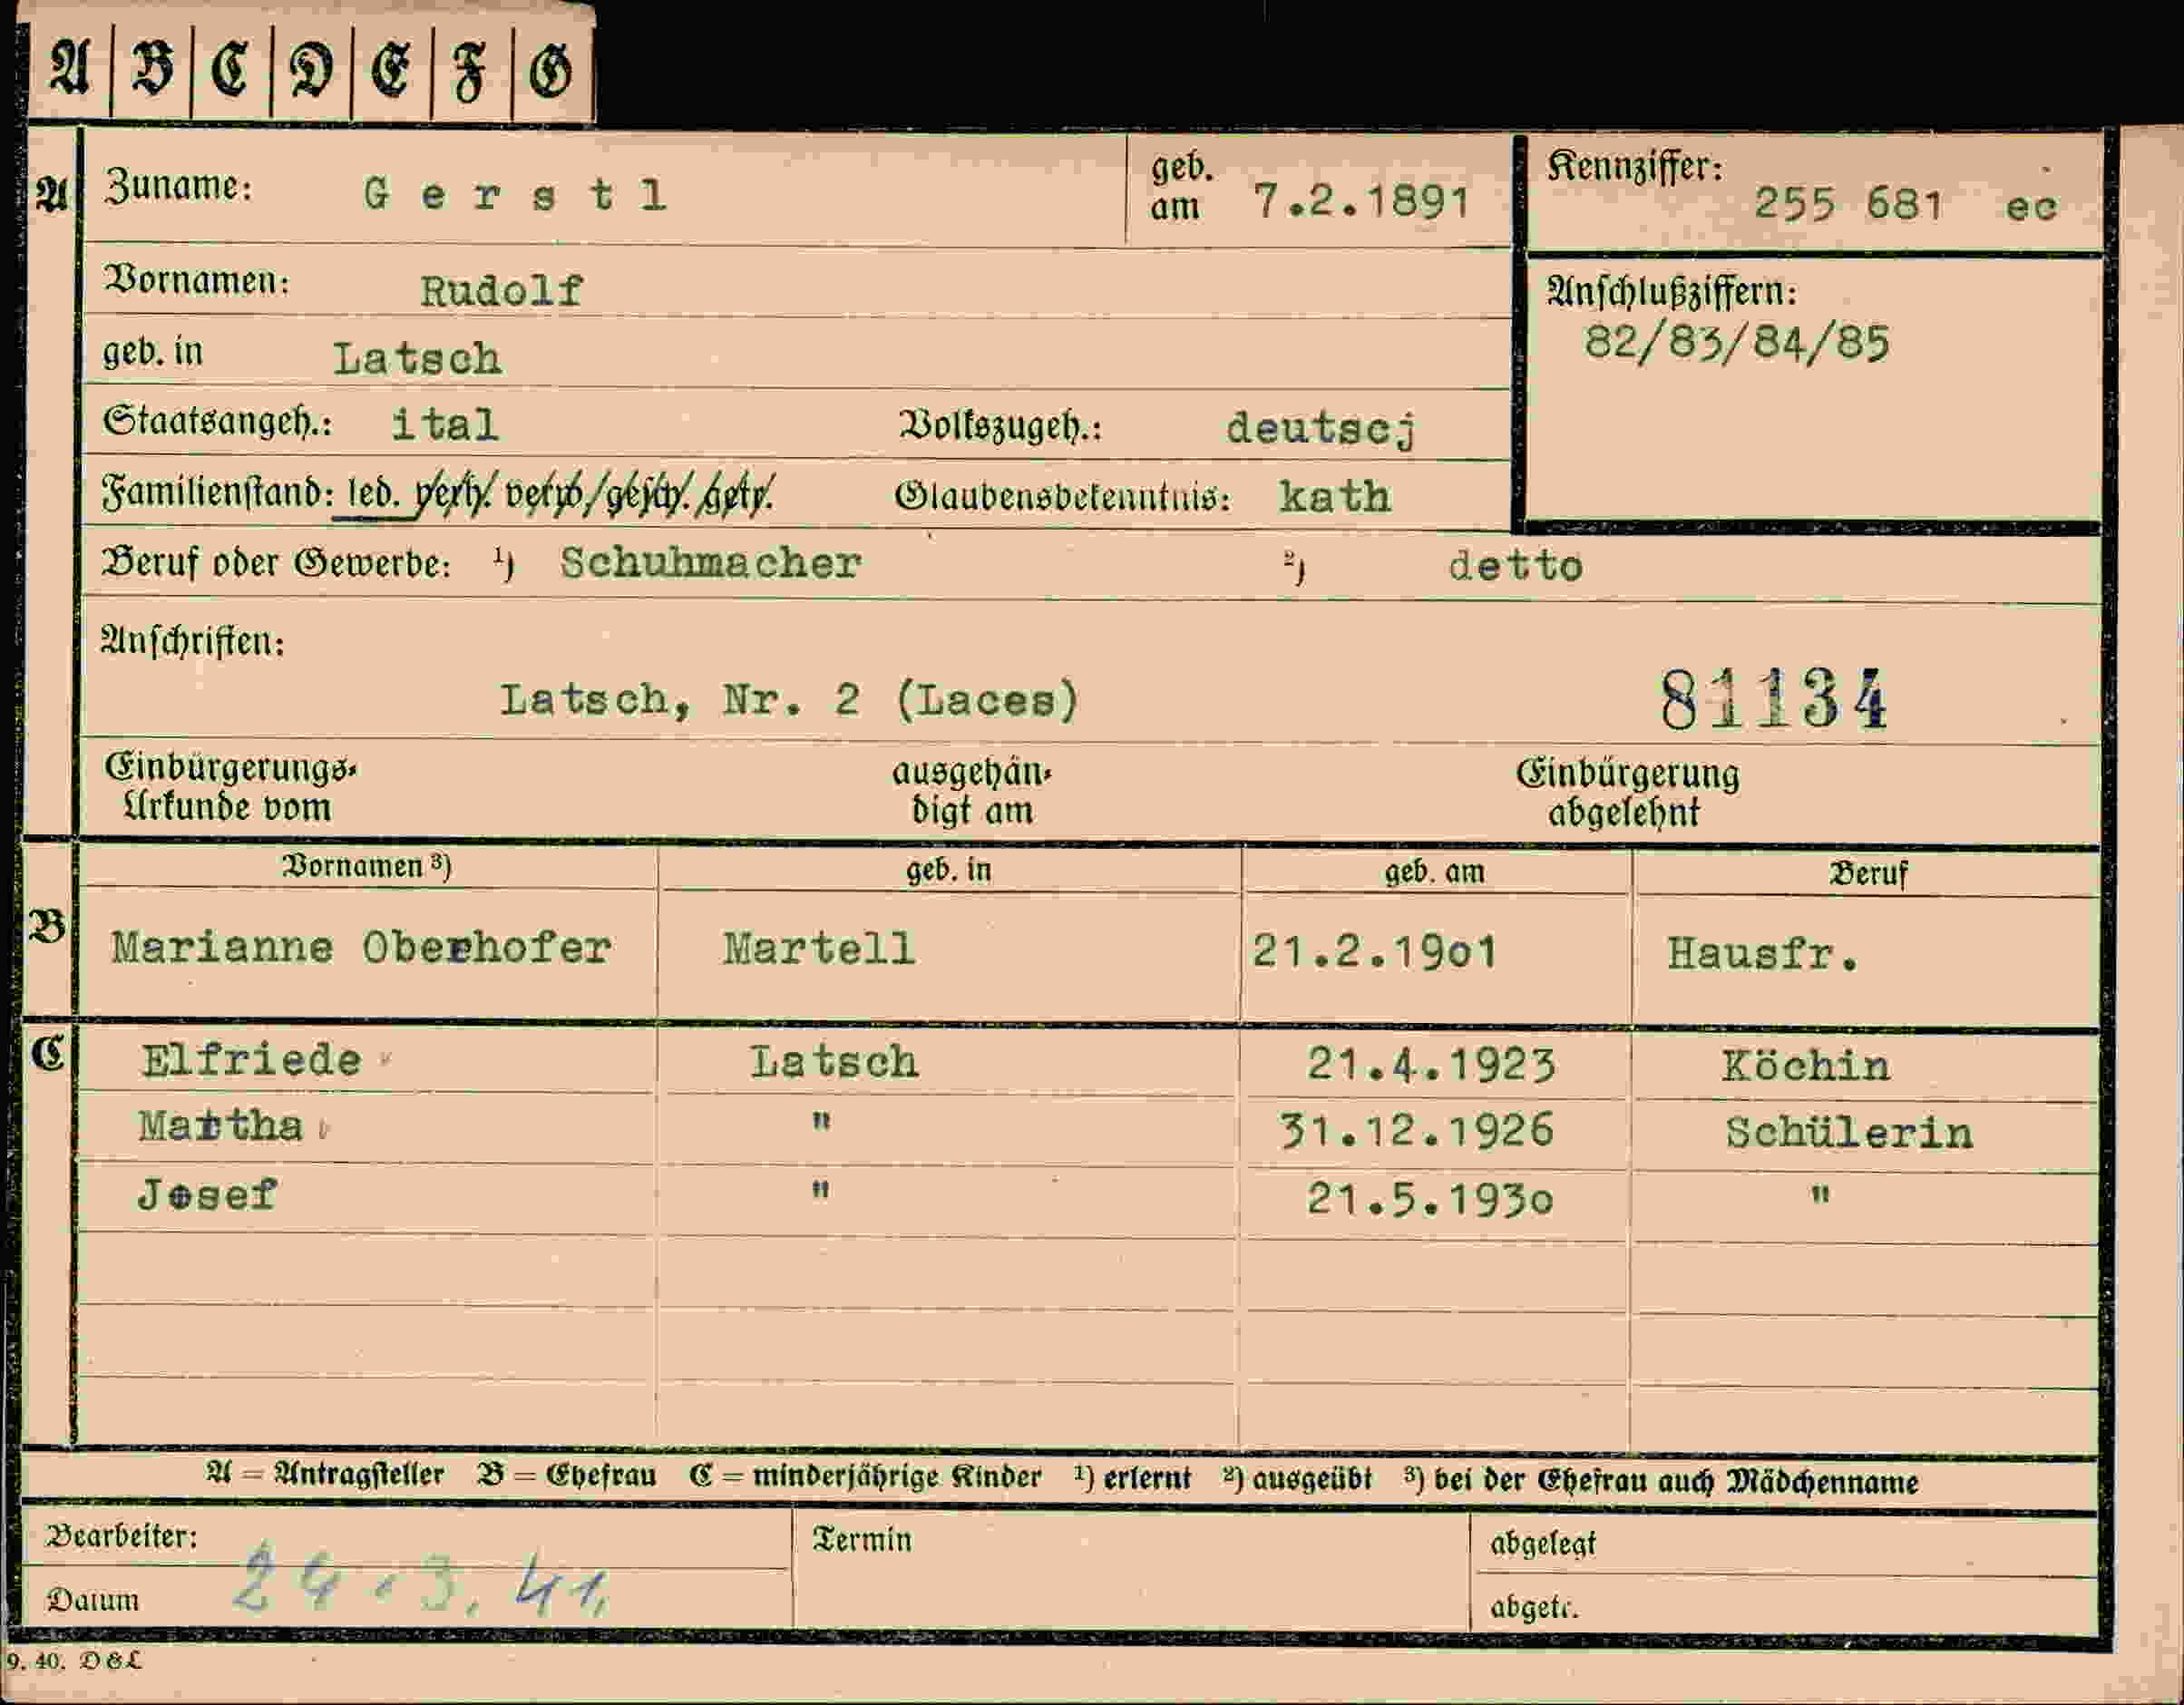 A B C D E F G
A Zuname: Gerstl geb. am 7.2.1891 Kennziffer: 255 681 ec
Vornamen: Rudolf Anschlußziffern:
82/83/84/85
geb. in Latsch
Staatsangeh.: ital Volkszugeh.: deutscj
Familienstand: led. verh. verw. gesch. getr. Glaubensbekenntnis: kath
Beruf oder Gewerbe: ¹) Schuhmacher ²) detto
Anschriften:
Latsch, Nr. 2 (Laces) 81134
Einbürgerungs- ausgehän- Einbürgerung
Urkunde vom digt am abgelehnt
Vornamen ³) geb. in geb. am Beruf
B Marianne Oberhofer Martell 21.2.19o1 Hausfr.
C Elfriede Latsch 21.4.1923 Köchin
Martha " 31.12.1926 Schülerin
Josef " 21.5.193o "
A = Antragsteller B = Ehefrau C = minderjährige Kinder ¹) erlernt ²) ausgeübt ³) bei der Ehefrau auch Mädchenname
Bearbeiter: Termin abgelegt
Datum 24.3.41. abgetr.
9. 40. D&L